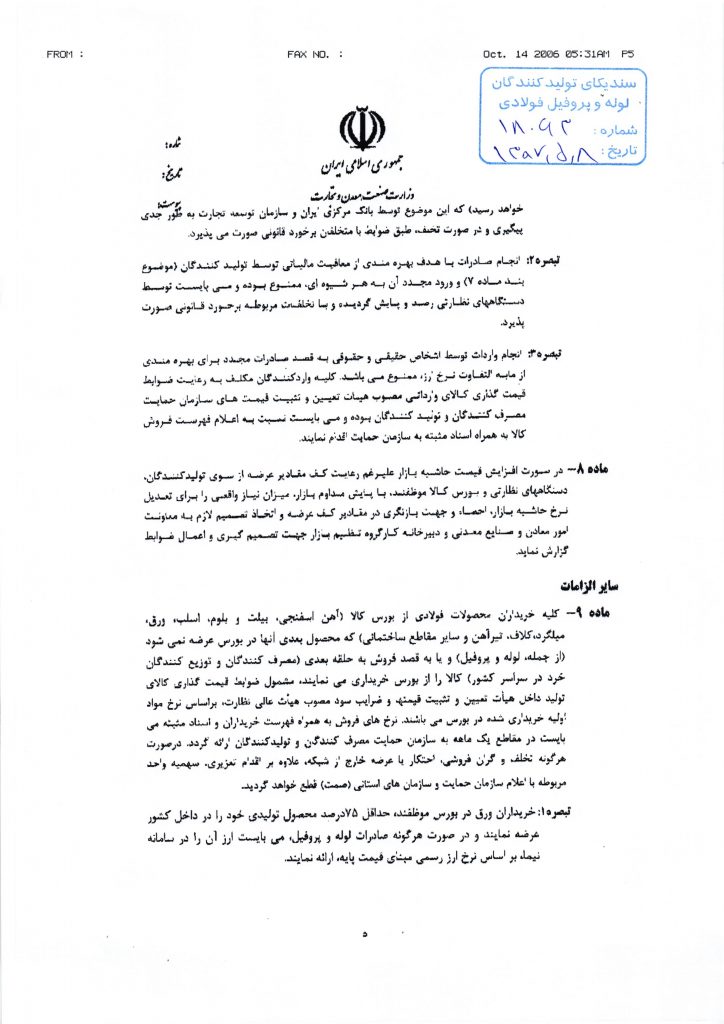 FROM : FAX NO. : Oct. 14 2006 05:31AM P5
سندیکای تولیدکنندگان
لوله و پروفیل فولادی
شماره :
تاریخ : ۱۳۹۷,۵,۸
جمهوری اسلامی ایران
وزارت صنعت، معدن و تجارت
شماره:
تاریخ:
پیوست:
خواهد رسید) که این موضوع توسط بانک مرکزی ایران و سازمان توسعه تجارت به طور جدی
پیگیری و در صورت تخلف، طبق ضوابط با متخلفان برخورد قانونی صورت می پذیرد.
تبصره۲: انجام صادرات با هدف بهره مندی از معافیت مالیاتی توسط تولید کنندگان (موضوع
بند ماده ۷) و ورود مجدد آن به هر شیوه ای، ممنوع بوده و می بایست توسط
دستگاههای نظارتی رصد و پایش گردیده و با تخلفات مربوطه برخورد قانونی صورت
پذیرد.
تبصره۳: انجام واردات توسط اشخاص حقیقی و حقوقی به قصد صادرات مجدد برای بهره مندی
از مابه التفاوت نرخ ارز، ممنوع می باشد. کلیه واردکنندگان مکلف به رعایت ضوابط
قیمت گذاری کالای وارداتی مصوب هیات تعیین و تثبیت قیمت های سازمان حمایت
مصرف کنندگان و تولید کنندگان بوده و می بایست نسبت به اعلام فهرست فروش
کالا به همراه اسناد مثبته به سازمان حمایت اقدام نمایند.
ماده ۸- در صورت افزایش قیمت حاشیه بازار علیرغم رعایت کف مقادیر عرضه از سوی تولیدکنندگان،
دستگاههای نظارتی و بورس کالا موظفند، با پایش مداوم بازار، میزان نیاز واقعی را برای تعدیل
نرخ حاشیه بازار، احصاء و جهت بازنگری در مقادیر کف عرضه و اتخاذ تصمیم لازم به معاونت
امور معادن و صنایع معدنی و دبیرخانه کارگروه تنظیم بازار جهت تصمیم گیری و اعمال ضوابط
گزارش نماید.
سایر الزامات
ماده ۹- کلیه خریداران محصولات فولادی از بورس کالا (آهن اسفنجی، بیلت و بلوم، اسلب، ورق،
میلگرد،کلاف، تیرآهن و سایر مقاطع ساختمانی) که محصول بعدی آنها در بورس عرضه نمی شود
(از جمله، لوله و پروفیل) و یا به قصد فروش به حلقه بعدی (مصرف کنندگان و توزیع کنندگان
خرد در سراسر کشور) کالا را از بورس خریداری می نمایند، مشمول ضوابط قیمت گذاری کالای
تولید داخل هیأت تعیین و تثبیت قیمتها و ضرایب سود مصوب هیأت عالی نظارت، براساس نرخ مواد
اولیه خریداری شده در بورس می باشند. نرخ های فروش به همراه فهرست خریداران و اسناد مثبته می
بایست در مقاطع یک ماهه به سازمان حمایت مصرف کنندگان و تولیدکنندگان ارائه گردد. درصورت
هرگونه تخلف و گران فروشی، احتکار یا عرضه خارج از شبکه، علاوه بر اقدام تعزیری، سهمیه واحد
مربوطه با اعلام سازمان حمایت و سازمان های استانی (صمت) قطع خواهد گردید.
تبصره۱: خریداران ورق در بورس موظفند، حداقل ۷۵درصد محصول تولیدی خود را در داخل کشور
عرضه نمایند و در صورت هرگونه صادرات لوله و پروفیل، می بایست ارز آن را در سامانه
نیما، بر اساس نرخ ارز رسمی مبنای قیمت پایه، ارائه نمایند.
۵